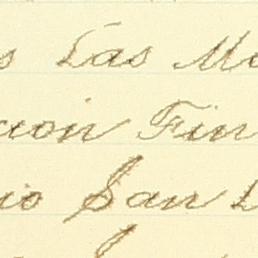 s Las Me
cion Fin
io San L